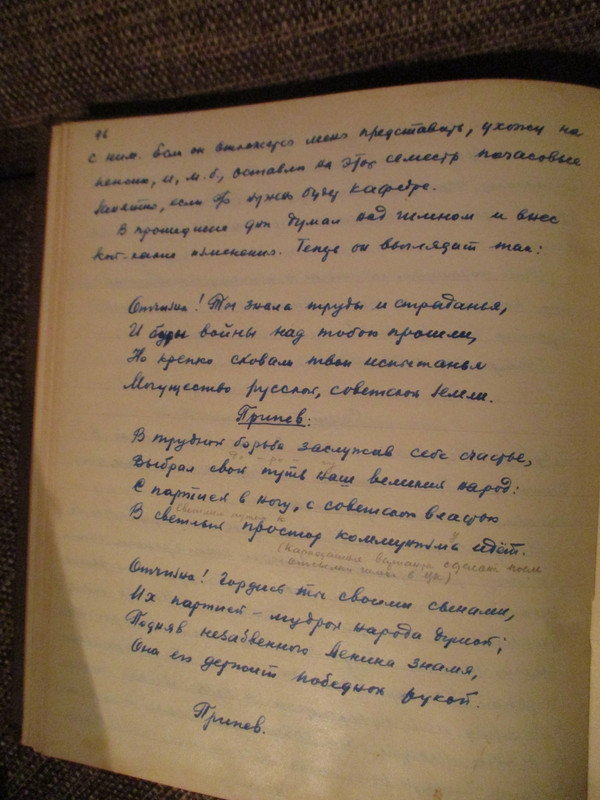 96
с ним. Если он откажется меня представить, ухожу на
пенсию, и, м.б., оставлю на этот семестр почасовые
занятия, если буду нужен кафедре.
В прошедшие дни думал над гимном и внес
кое-какие изменения. Теперь он выглядит так:
Отчизна! Ты знала труды и страданья,
И бури войны над тобою прошли,
Но крепко сковали твои испытанья
Могущество русской, советской земли.
Припев:
В трудной борьбе заслужив себе счастье,
Выбрал свой путь наш великий народ:
С партией в ногу, с советской властью
В светлый простор коммунизма идёт.
Светлым путем к
(Карандашом варианты сделаны после
отсылки гимна в ЦК)
Отчизна! Гордись ты своими сынами,
Их партией – мудрой народа душой;
Подняв незабвенного Ленина знамя,
Она его держит победной рукой.
Припев.